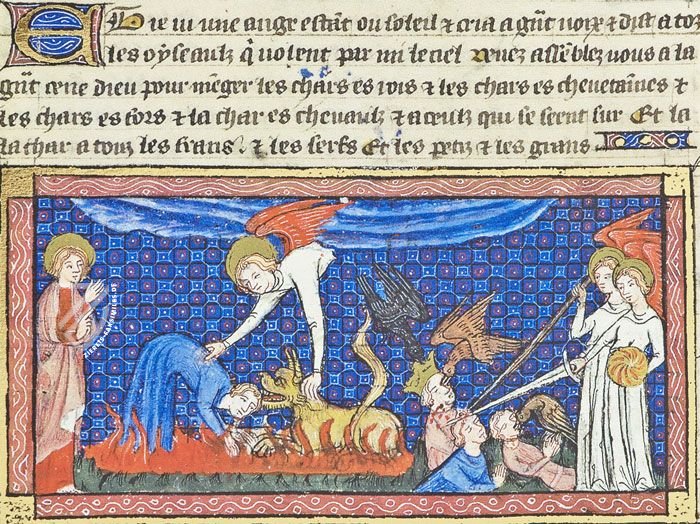 E ie ui une ange estãt ou soleil ⁊ cria a gñt uoix ⁊ dist a toz
les oyseaulz q̃ uolent par mi le ciel venez assẽblez uous a la
gñt cene dieu pour mẽger les chars es rois ⁊ les chars es cheuetaines ⁊
les chars es fors ⁊ la char es cheuaulz ⁊ a ceulz qui se seent sur Et la
la char a touz les frans . ⁊ les serfs Et les petiz ⁊ les grans